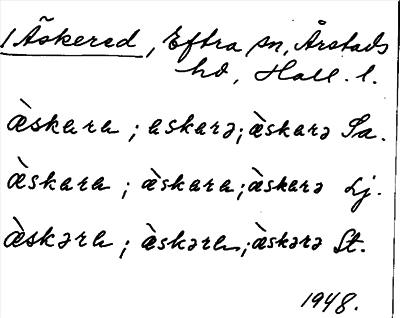 1 Äskered, Eftra sn, Årstads
hd, Hall. l.
àskara ; askarə; àskarə Sa.
àskara ; àskara; àskarə Lj.
àskəra ; àskəra; àskərə St.
1948.